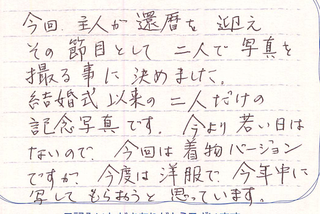 今回 主人が 還暦を 迎え
その 節目として 二人で 写真を
撮る 事に 決めました。
結婚式 以来の 二人だけの
記念写真です。 今より 若い日は
ないので、 今回は 着物 バージョン
ですが、 今度は 洋服で、 今年中に
写して もらおうと 思っています。